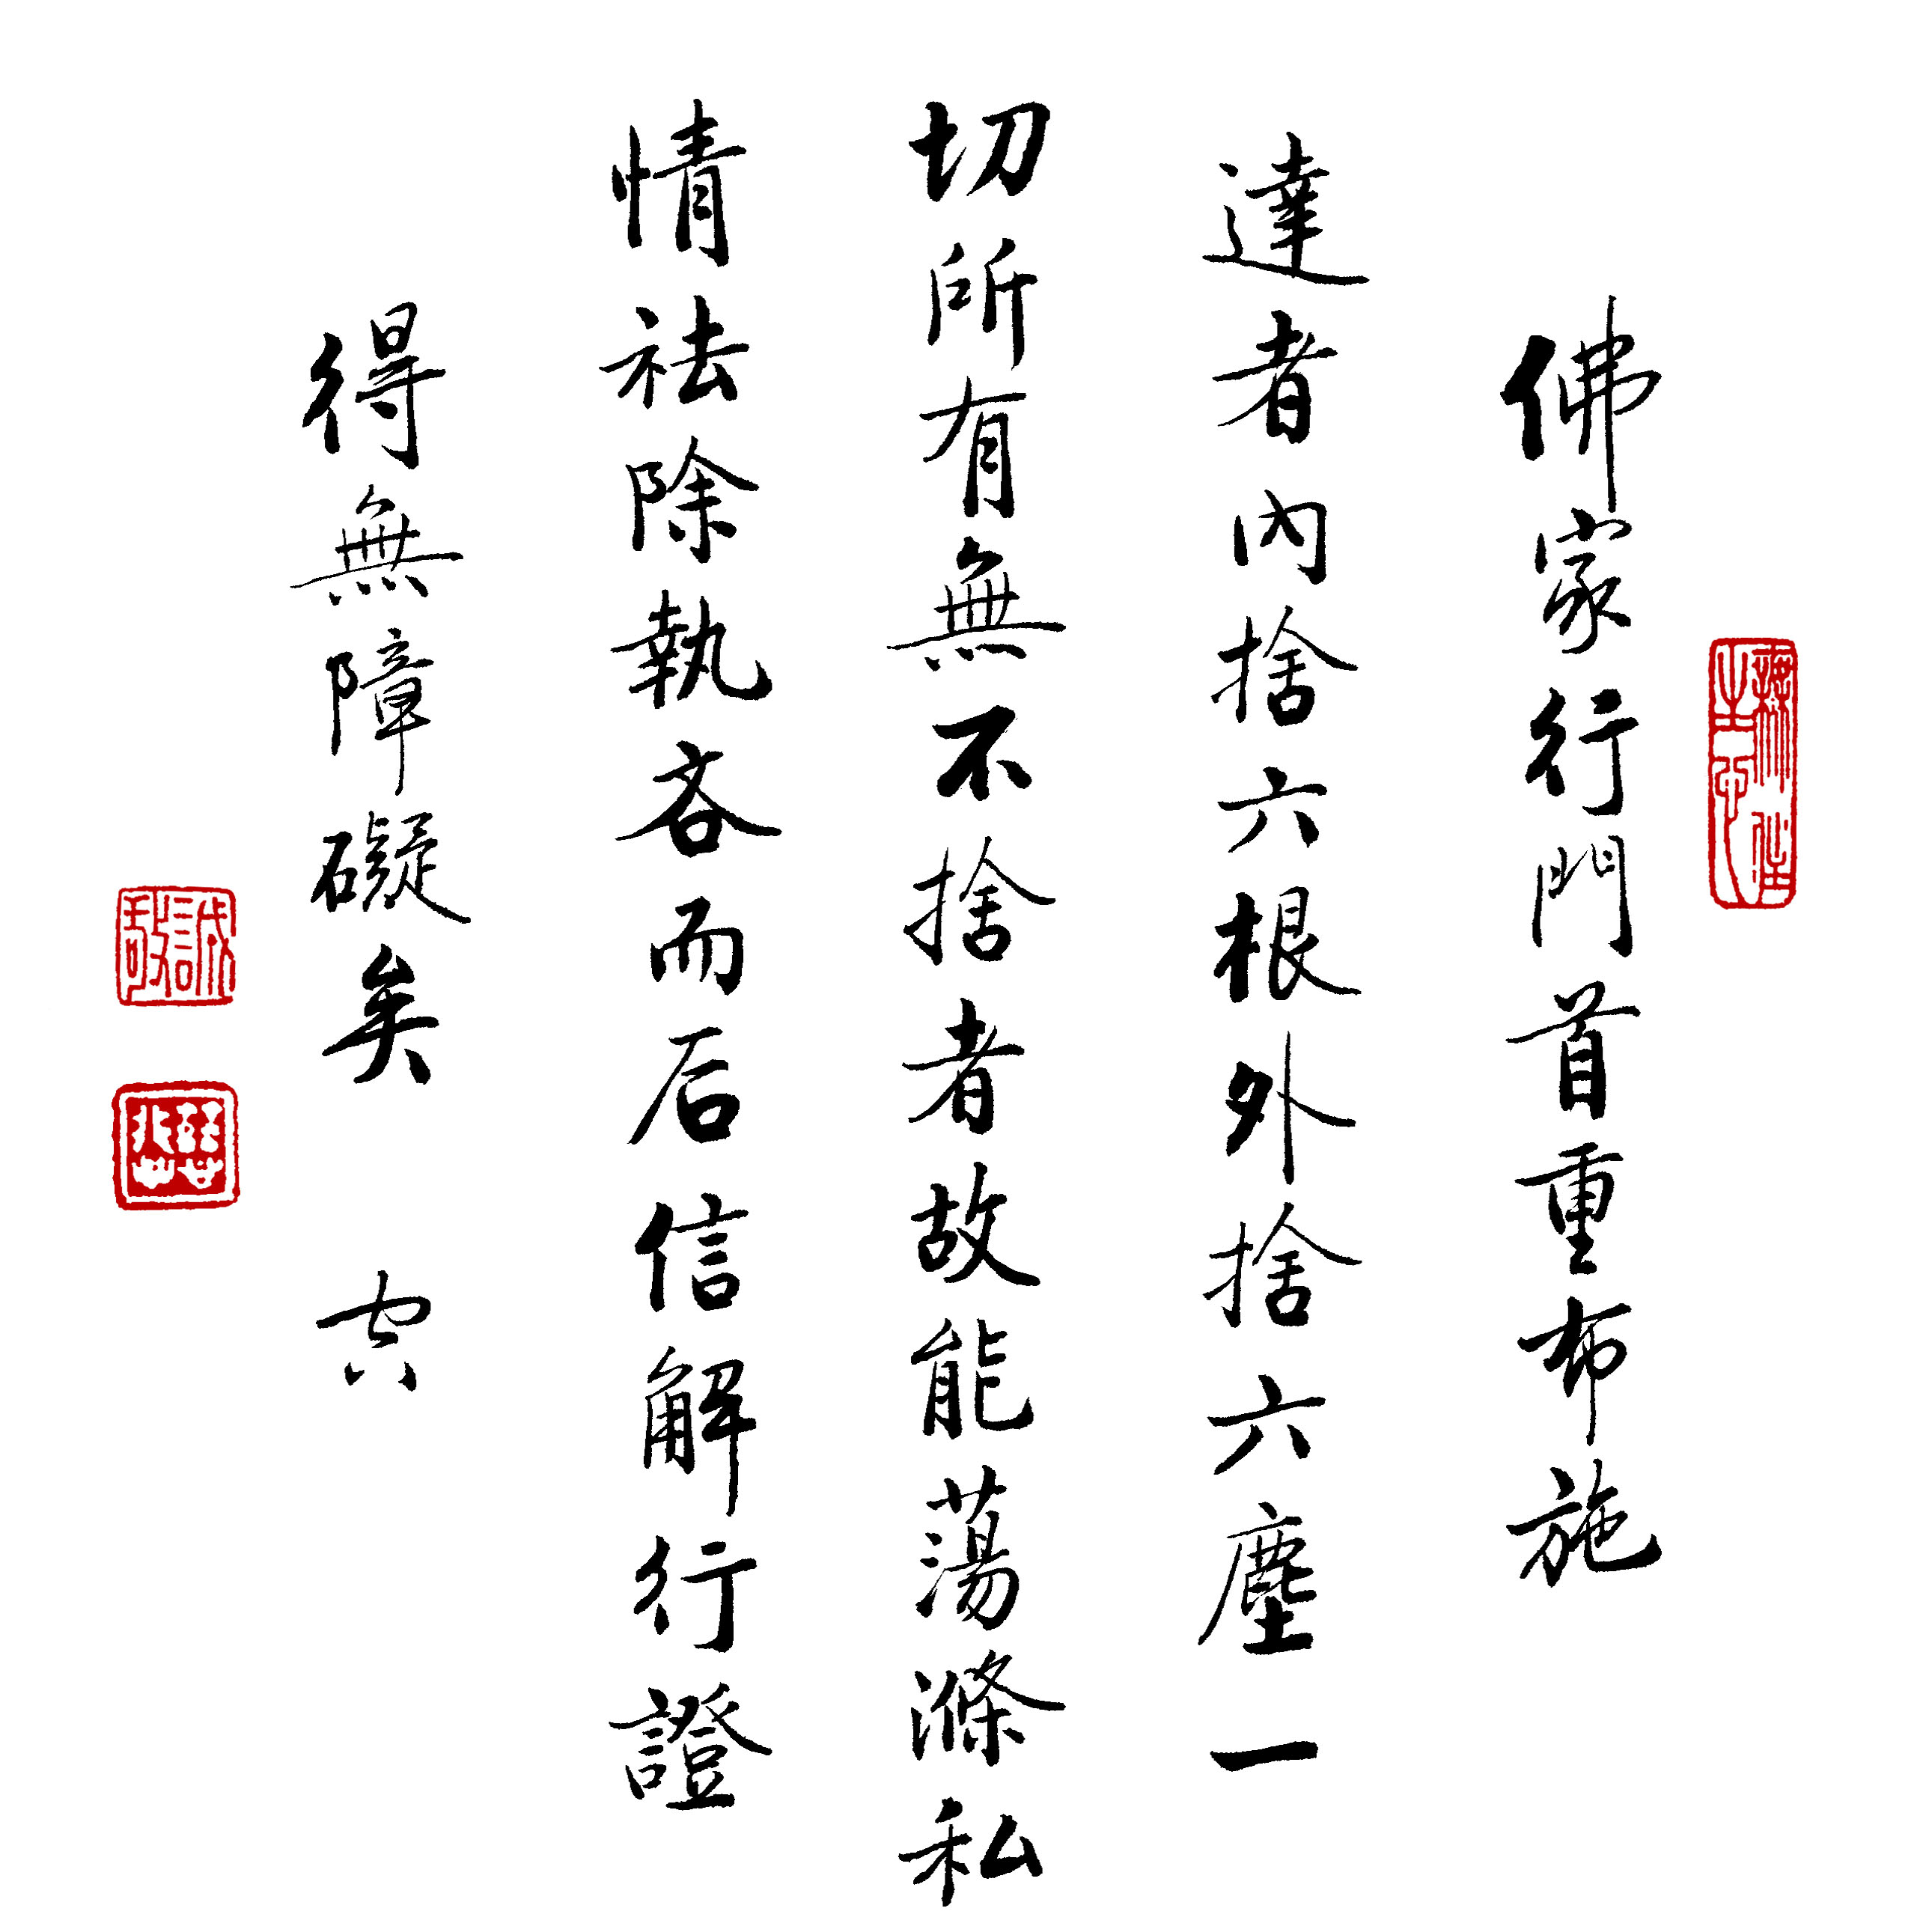 佛家行門首重布施
達者內捨六根外捨六塵一
切所有無不捨者故能蕩滌私
情祛除執吝而后信解行證
得無障礙矣
誠敬